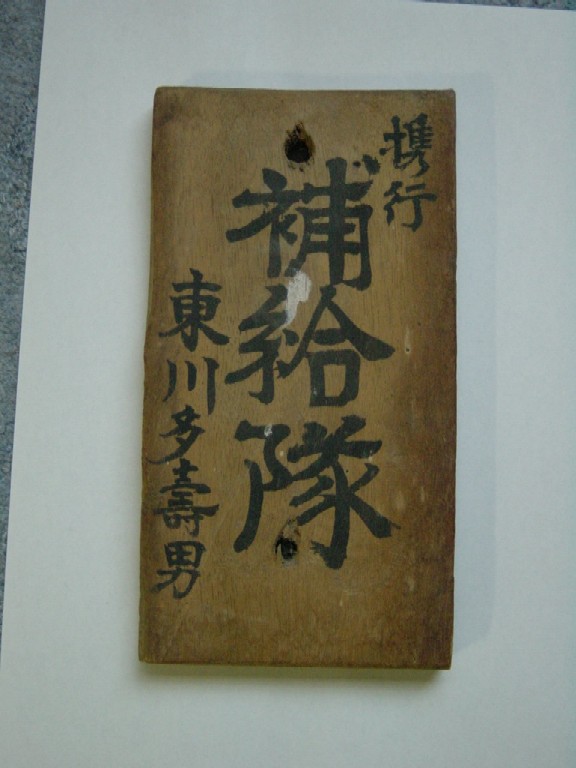 携行
補給隊
東川多壽男